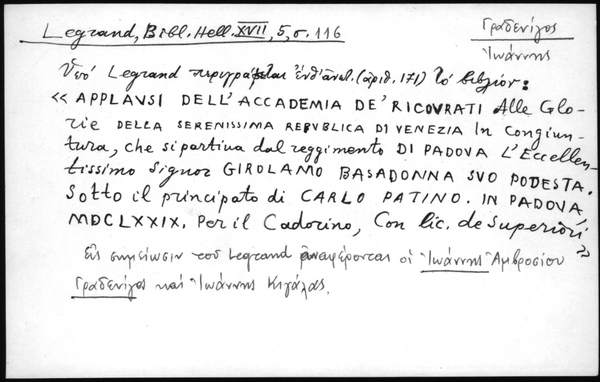 Legrand, Bibl. Hell. XVII, 5, σ. 116
Γραδενίγος
Ἰωάννης
Ὑπό Legrand περιγράφεται ἐνθ' ἀνωτ. (ἀριθ. 171) τό βιβλίον:
« APPLAVSI DELL' ACCADEMIA DE' RICOVRATI Alle Glo-
rie DELLA SERENISSIMA REPVBLICA DI VENEZIA In congiun-
tura, che si partiva dal reggimento DI PADOVA L'Eccellen-
tissimo Signor GIROLAMO BASADONNA SVO PODESTA.
Sotto il principato di CARLO PATINO. IN PADOVA
MDCLXXIX. Per il Cadorino, Con lic. de Superiori »
Εἰς σημείωσιν τοῦ Legrand ἀναφέρονται οἱ Ἰωάννης Ἀμβροσίου
Γραδενίγος καί Ἰωάννης Κιγάλας.